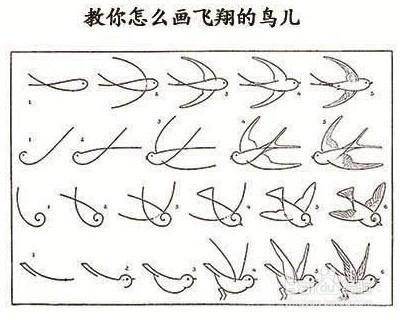 教你怎么画飞翔的鸟儿
1 2 3 4 5
1 2 3 4 5
1 2 3 4 5 6
1 2 3 4 5 6